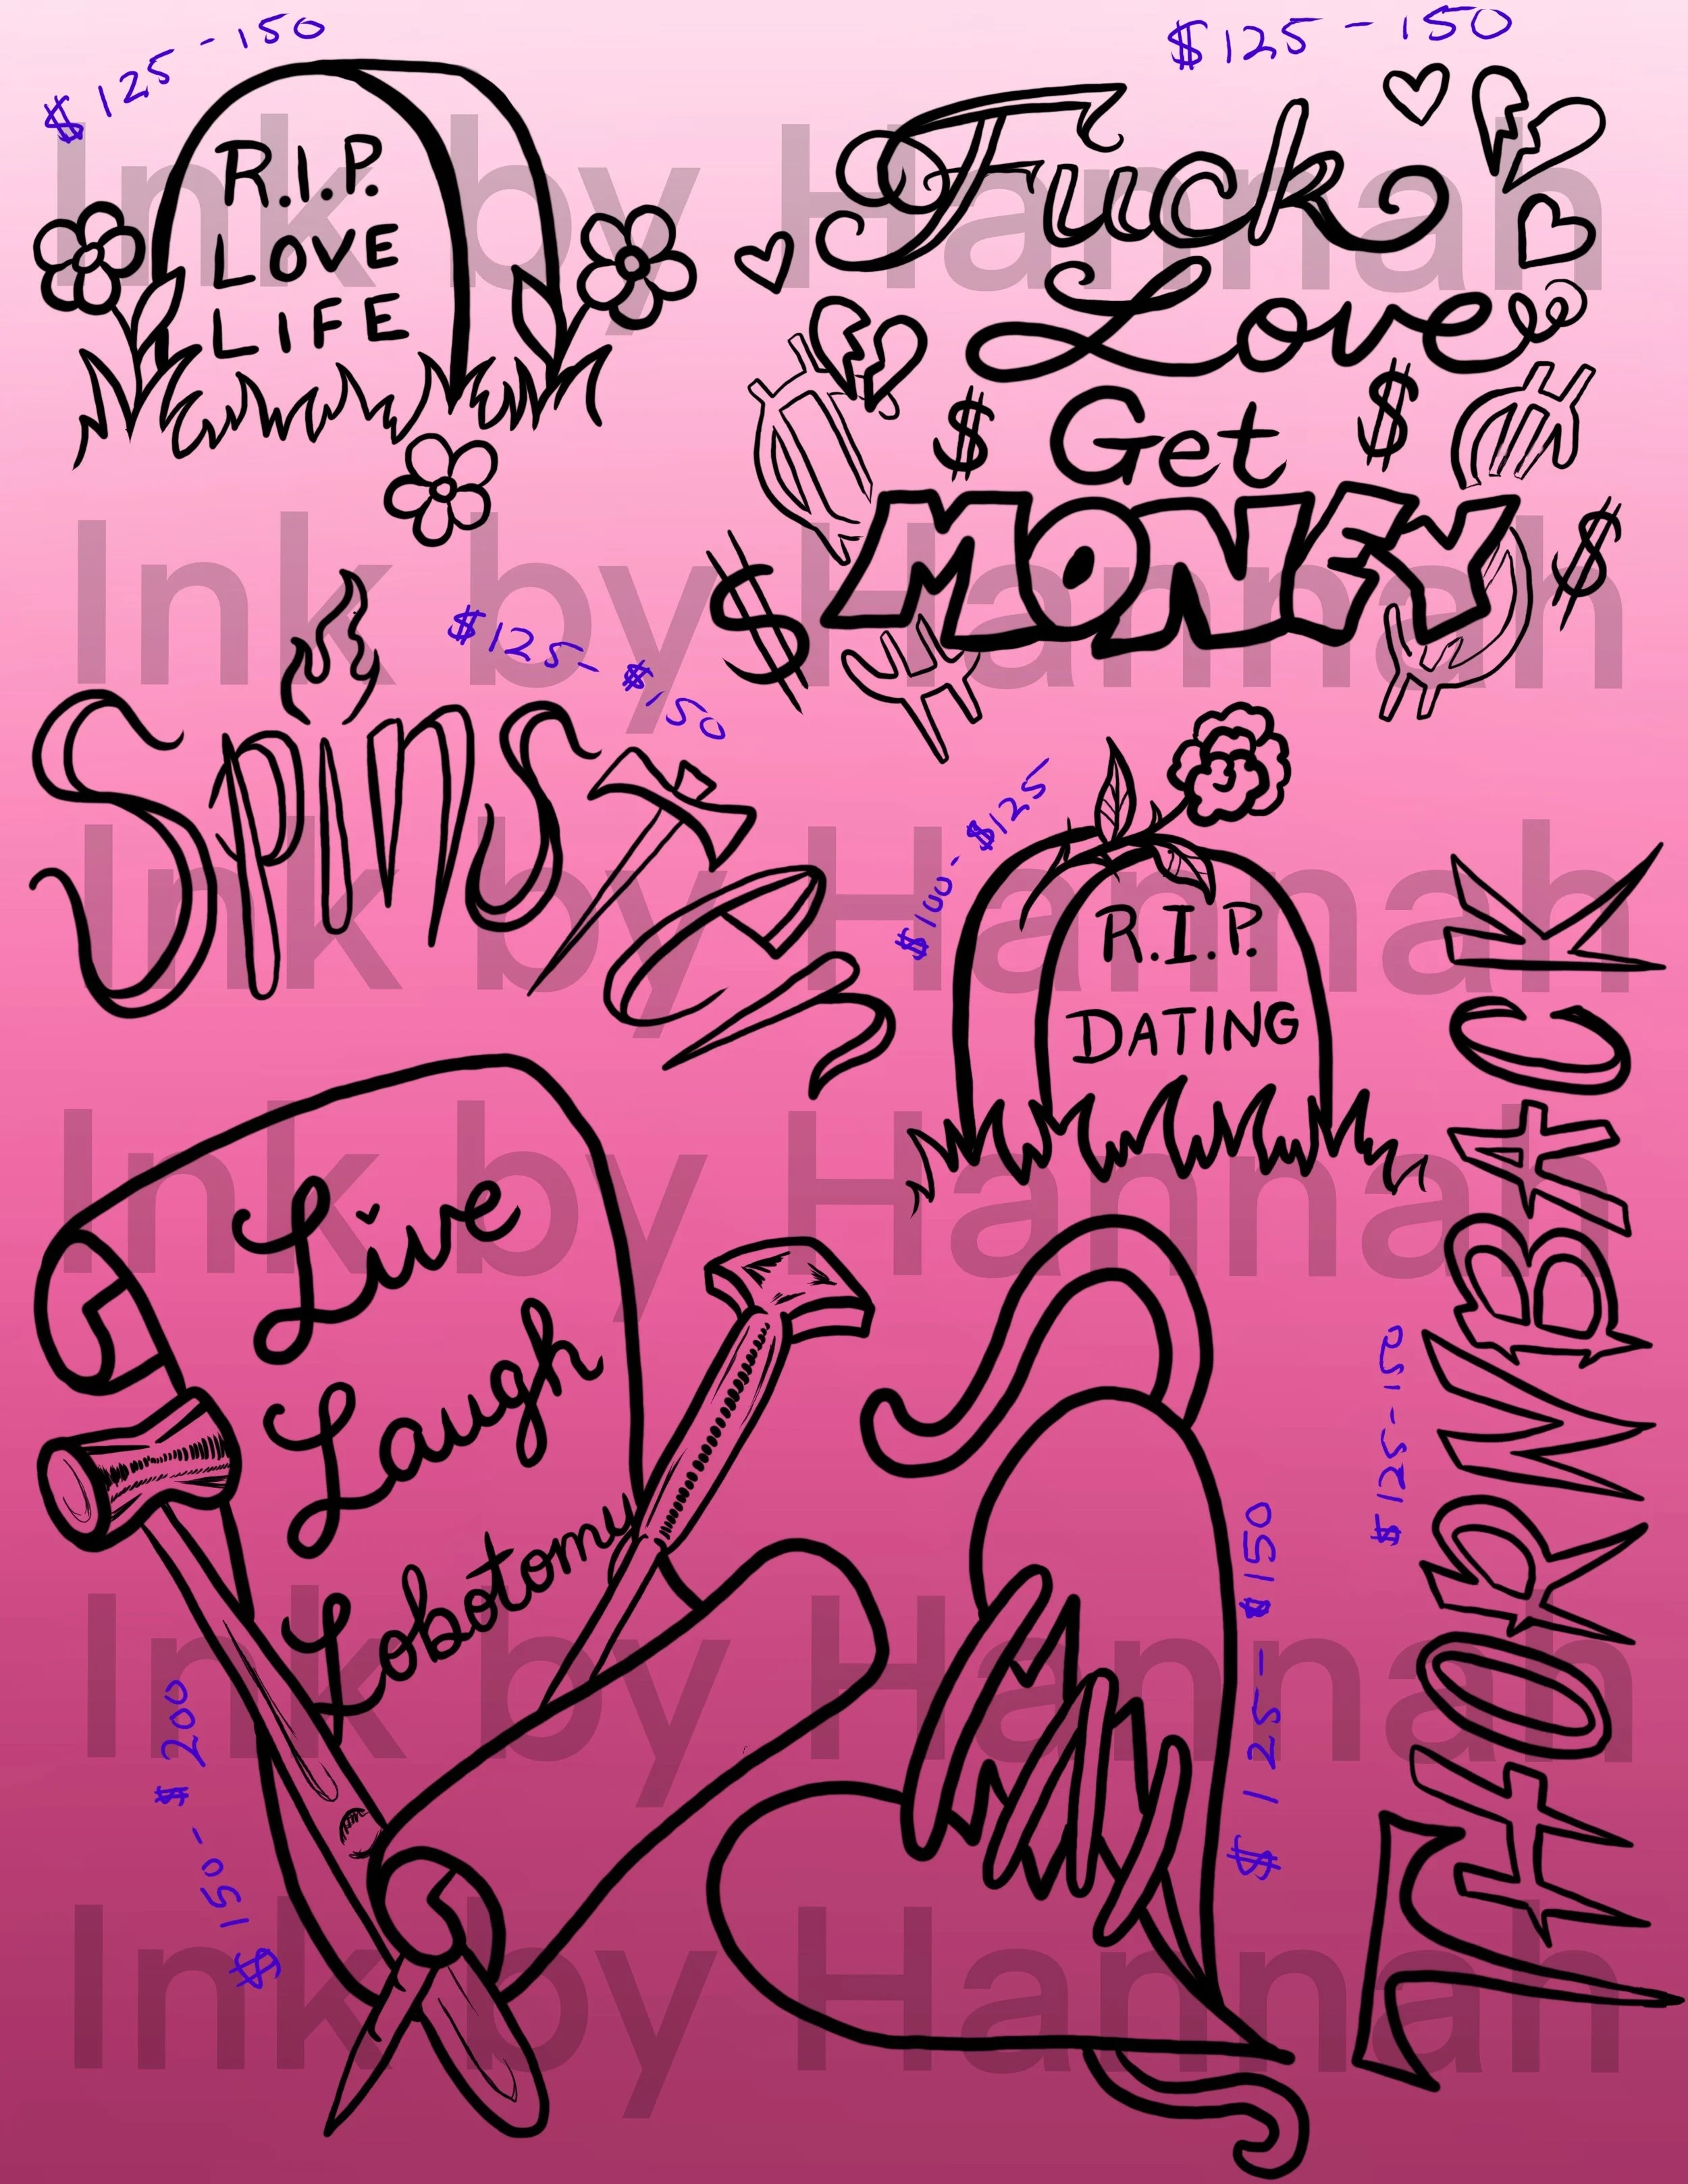 $125-150
R.I.P.
LOVE
LIFE
$125-150
Fuck
Love
$ Get $
MONEY
$
$
$125-$150
SpinSTer
$100-$125
R.I.P.
DATING
THORNBACK
$125-150
Live
Laugh
Lobotomy
$150-$200
$125-$150
Ink by Hannah
Ink by Hannah
Ink by Hannah
Ink by Hannah
Ink by Hannah
Ink by Hannah